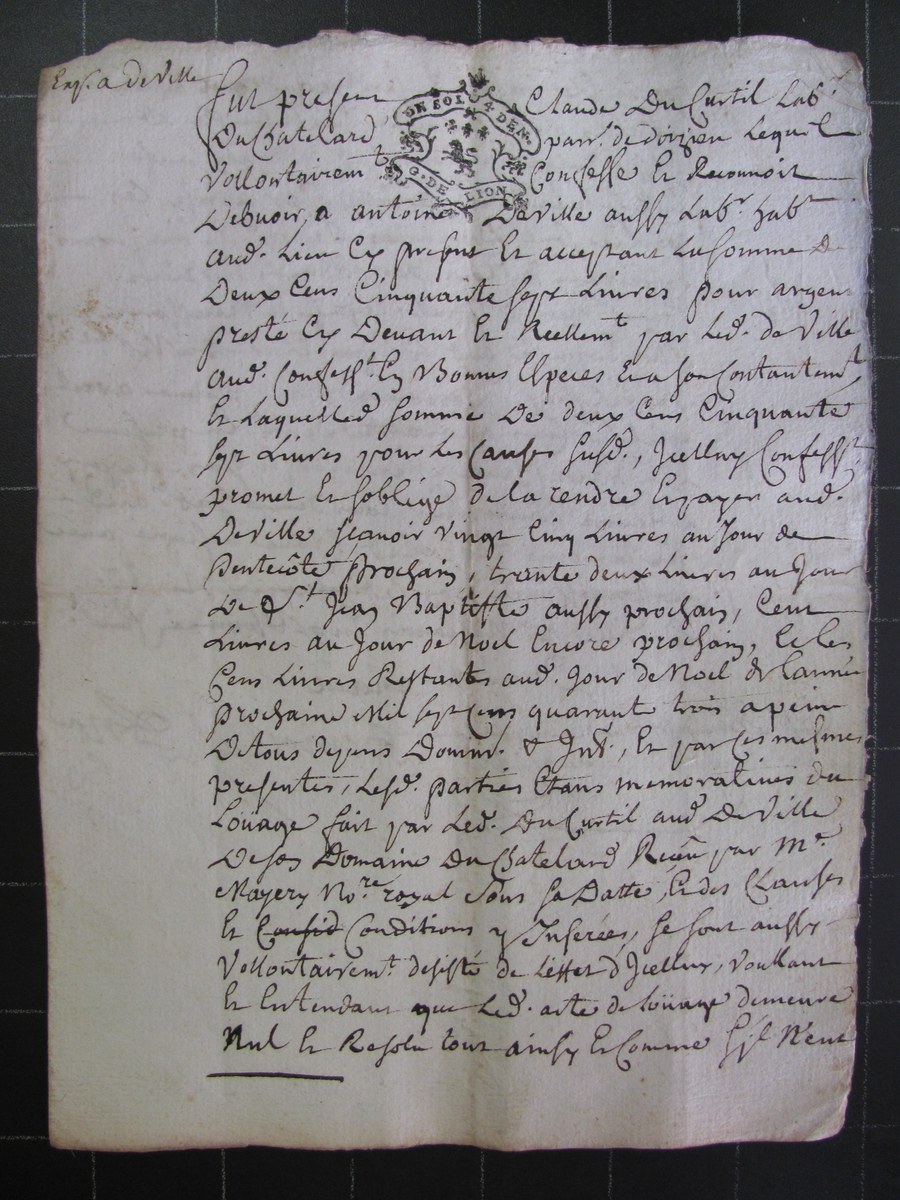 Exp. a deVille
fut present Claude Du Curtil Labr.
Du Chatelard parr. de doizieu Lequel
Vollontairemt. Confesse Et Reconnoit
UN SOL 4 DEN.
G. DE LION
Debvoir, a antoine DeVille aussy Labr. habt
aud. Lieu Cy present Et acceptant La somme De
Deux Cens Cinquante sept Livres pour argent
presté Cy Devant Et Reellemt. par Led. de Ville
aud. Confesst. En Bonnes Especes Et a son Contantemt,
Et Laquelled somme De deux Cens Cinquante
sept Livres pour Les Causes susd., Jcelluy Confesst.
promet Et soblige de la rendre Et payer aud.
DeVille scavoir Vingt Cinq Livres au Jour de
pentecôte prochain, trante deux Livres au Jour
De St. Jean Baptiste aussy prochain, Cent
Livres au Jour de Noel Encore prochain, Et les
Cens Livres Restantes aud. Jour de Noel de Lannée
prochaine Mil sept Cens quarant trois a peine
De tous depens Domm. & Int., Et par Ces mesmes
presentes, Lesd. parties Etans memoratives du
Loüage fait par Led. Du Curtil aud. DeVille
De ses Domaine Du Chatelard Receu par Me.
Mayery Nore. royal sous sa Datte, Et des Clauses
Et Consid Conditions y Inserées, se sont aussy
Vollontairemt. desisté de L'effet d'Jcelluy, voullant
Et Entendant que Led. acte de Loüage demeure
Nul Et Resolu tout ainsy Et Comme s'il N'eut